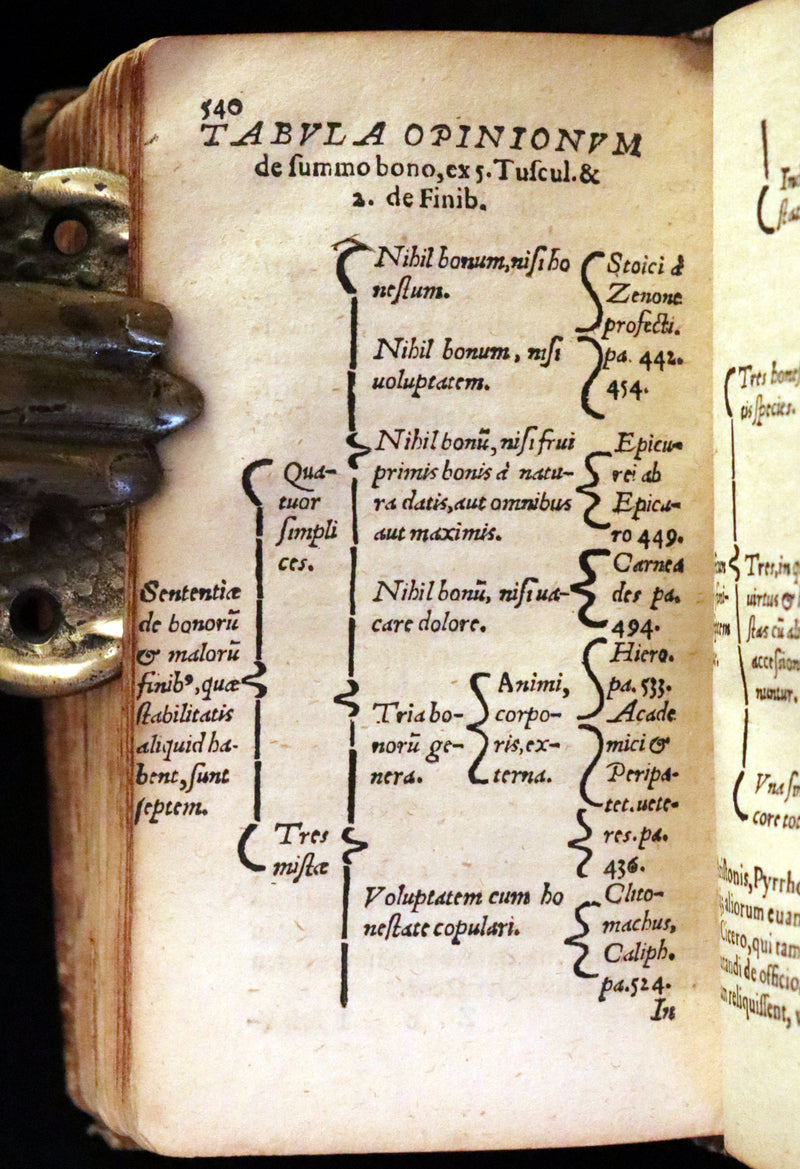 540
TABVLA OPINIONVM
de ſummo bono, ex 5. Tuſcul. &
2. de Finib.
Sententiæ
de bonorū
& malorū
finibꝰ, quæ
ſtabilitatis
aliquid ha-
bent, ſunt
ſeptem.
Qua-
tuor
ſimpli
ces.
Nihil bonum, niſi ho
neſtum.
Stoici à
Zenone
profecti.
pa. 442.
454.
Nihil bonum, niſi
uoluptatem.
Epicu-
rei ab
Epicu-
ro 449.
Nihil bonū, niſi frui
primis bonis à natu-
ra datis, aut omnibus
aut maximis.
Carnea
des pa.
494.
Nihil bonū, niſi ua-
care dolore.
Hiero.
pa. 533.
Tres
miſtæ
Tria bo-
norū ge-
nera.
Animi,
corpo-
ris, ex-
terna.
Acade
mici &
Peripa-
tet. uete-
res. pa.
436.
Voluptatem cum ho
neſtate copulari.
Clito-
machus,
Caliph.
pa. 524.
In
Tres bone
pis ſpecies.
Tres, in q
uirtus &
ſtas cū ab
acceſſion
nuntur.
Vna ſim
core tot
Pyrrho
aliorum euan
Cicero, qui tam
andi de officio
reliquiſſent, u